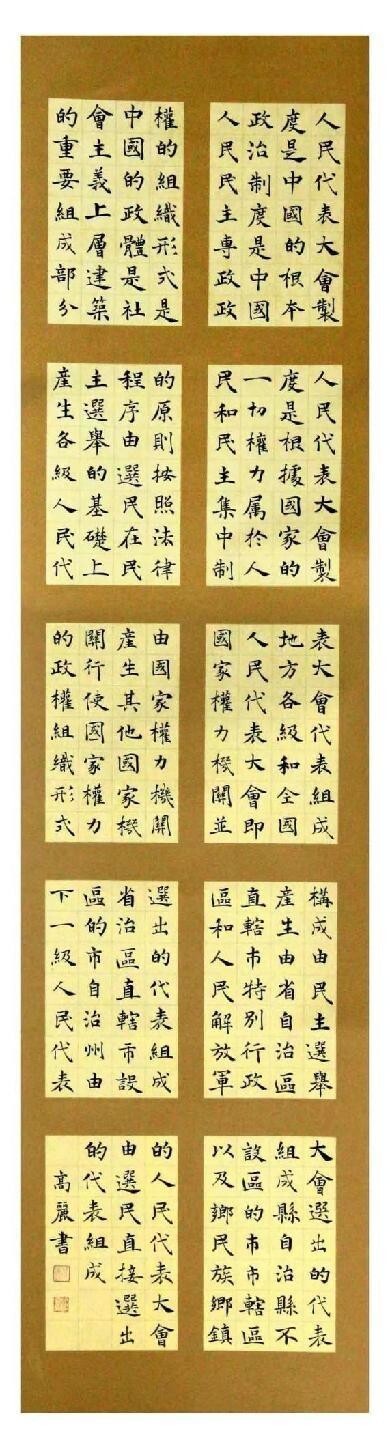 人民代表大會製
度是中國的根本
政治制度是中國
人民民主專政政
權的組織形式是
中國的政體是社
會主義上層建築
的重要組成部分
人民代表大會製
度是根據國家的
一切權力属於人
民和民主集中制
的原則按照法律
程序由選民在民
主選舉的基礎上
產生各級人民代
表大會代表組成
地方各級和全國
人民代表大會即
國家權力機關並
由國家權力機關
產生其他國家機
關行使國家權力
的政權組織形式
構成由民主選舉
產生由省自治區
直轄市特別行政
區和人民解放軍
選出的代表組成
省治區直轄市設
區的市自治州由
下一級人民代表
大會選出的代表
組成縣自治縣不
設區的市市轄區
以及鄉民族鄉鎮
的人民代表大會
由選民直接選出
的代表組成
高麗書